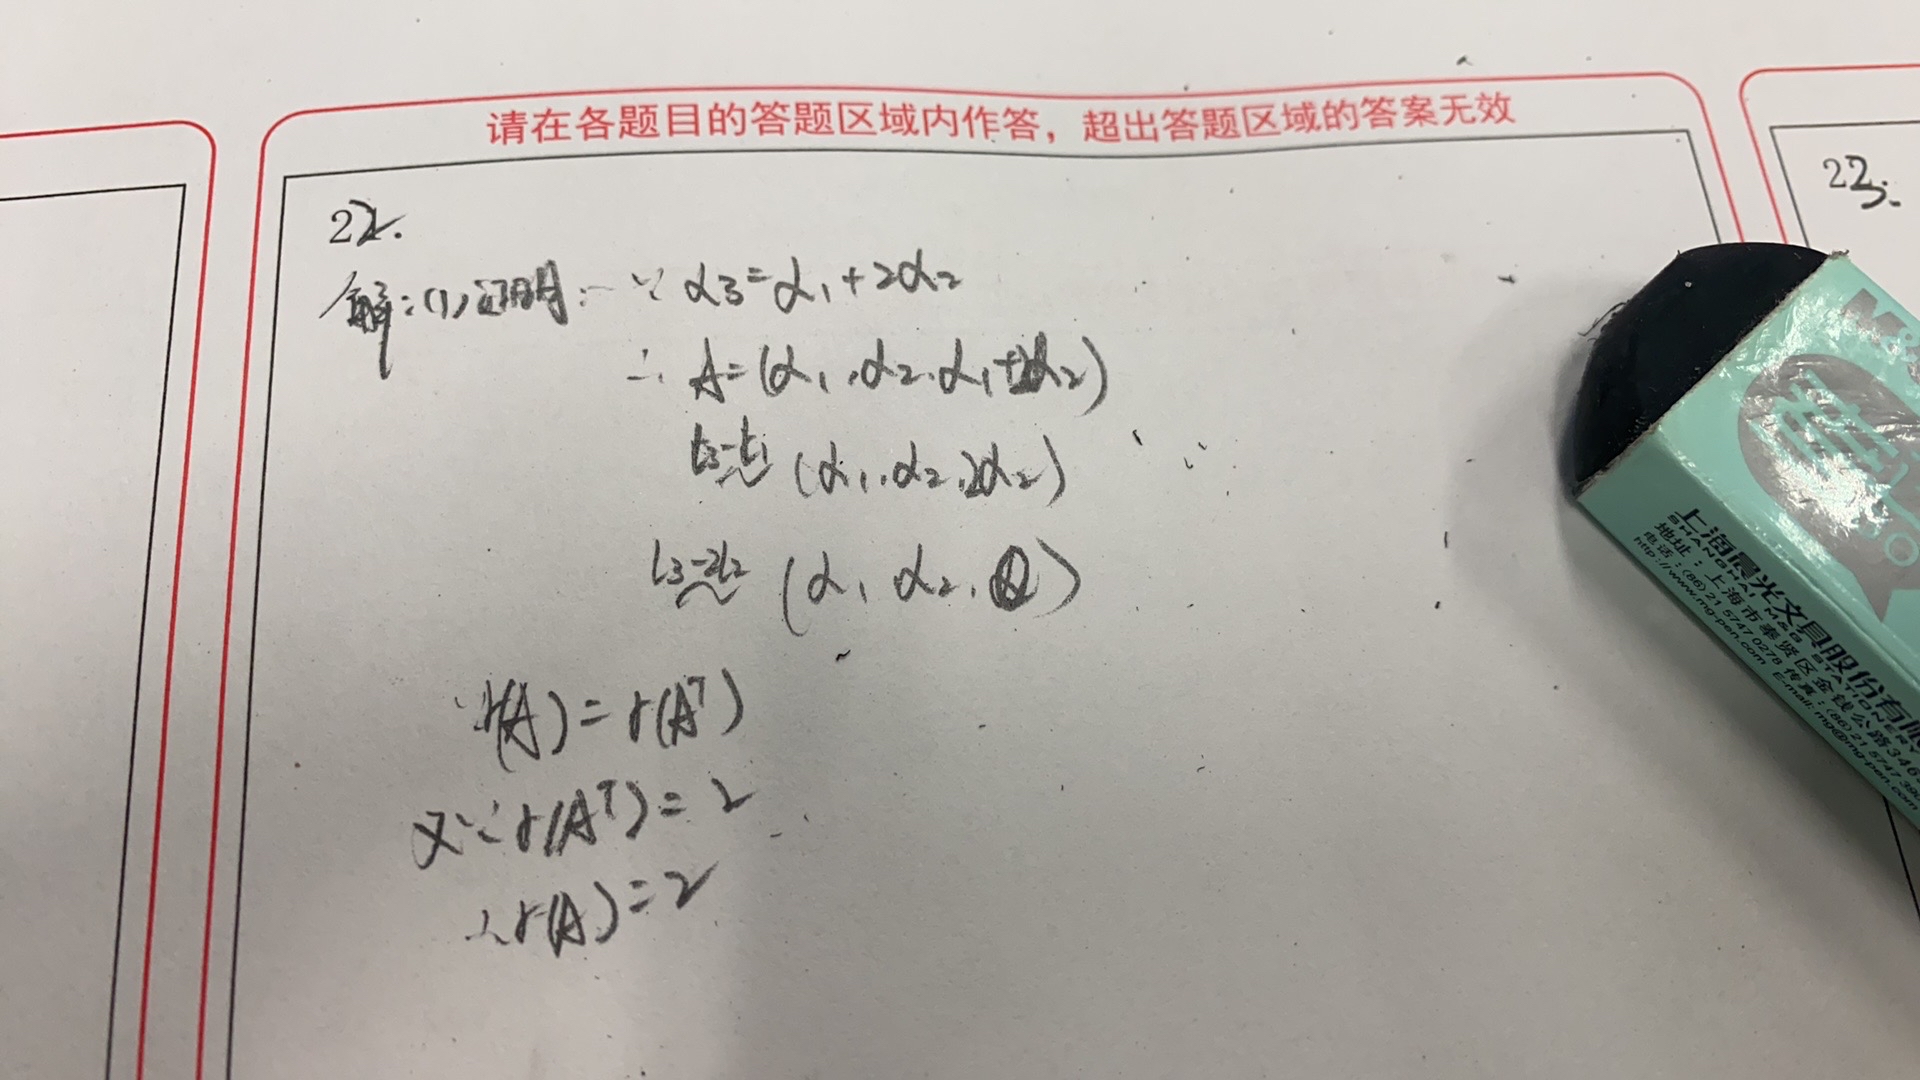 请在各题目的答题区域内作答，超出答题区域的答案无效
22.
解:(1)证明: ∵ α3=α1+2α2
∴ A=(α1,α2,α1+2α2)
(α1,α2,2α2)
(α1,α2,0)
r(A)=r(Aᵀ)
又∵r(Aᵀ)=2
∴r(A)=2
23.
M&G
上海晨光文具股份有限
SHANGHAI M&G STATIONERY
地址:上海市奉贤区金钱公路346
电话:(86)21 5747 0278 传真:(86)21 5747
http://www.mg-pen.com E-mail: mg@mg-pen.com